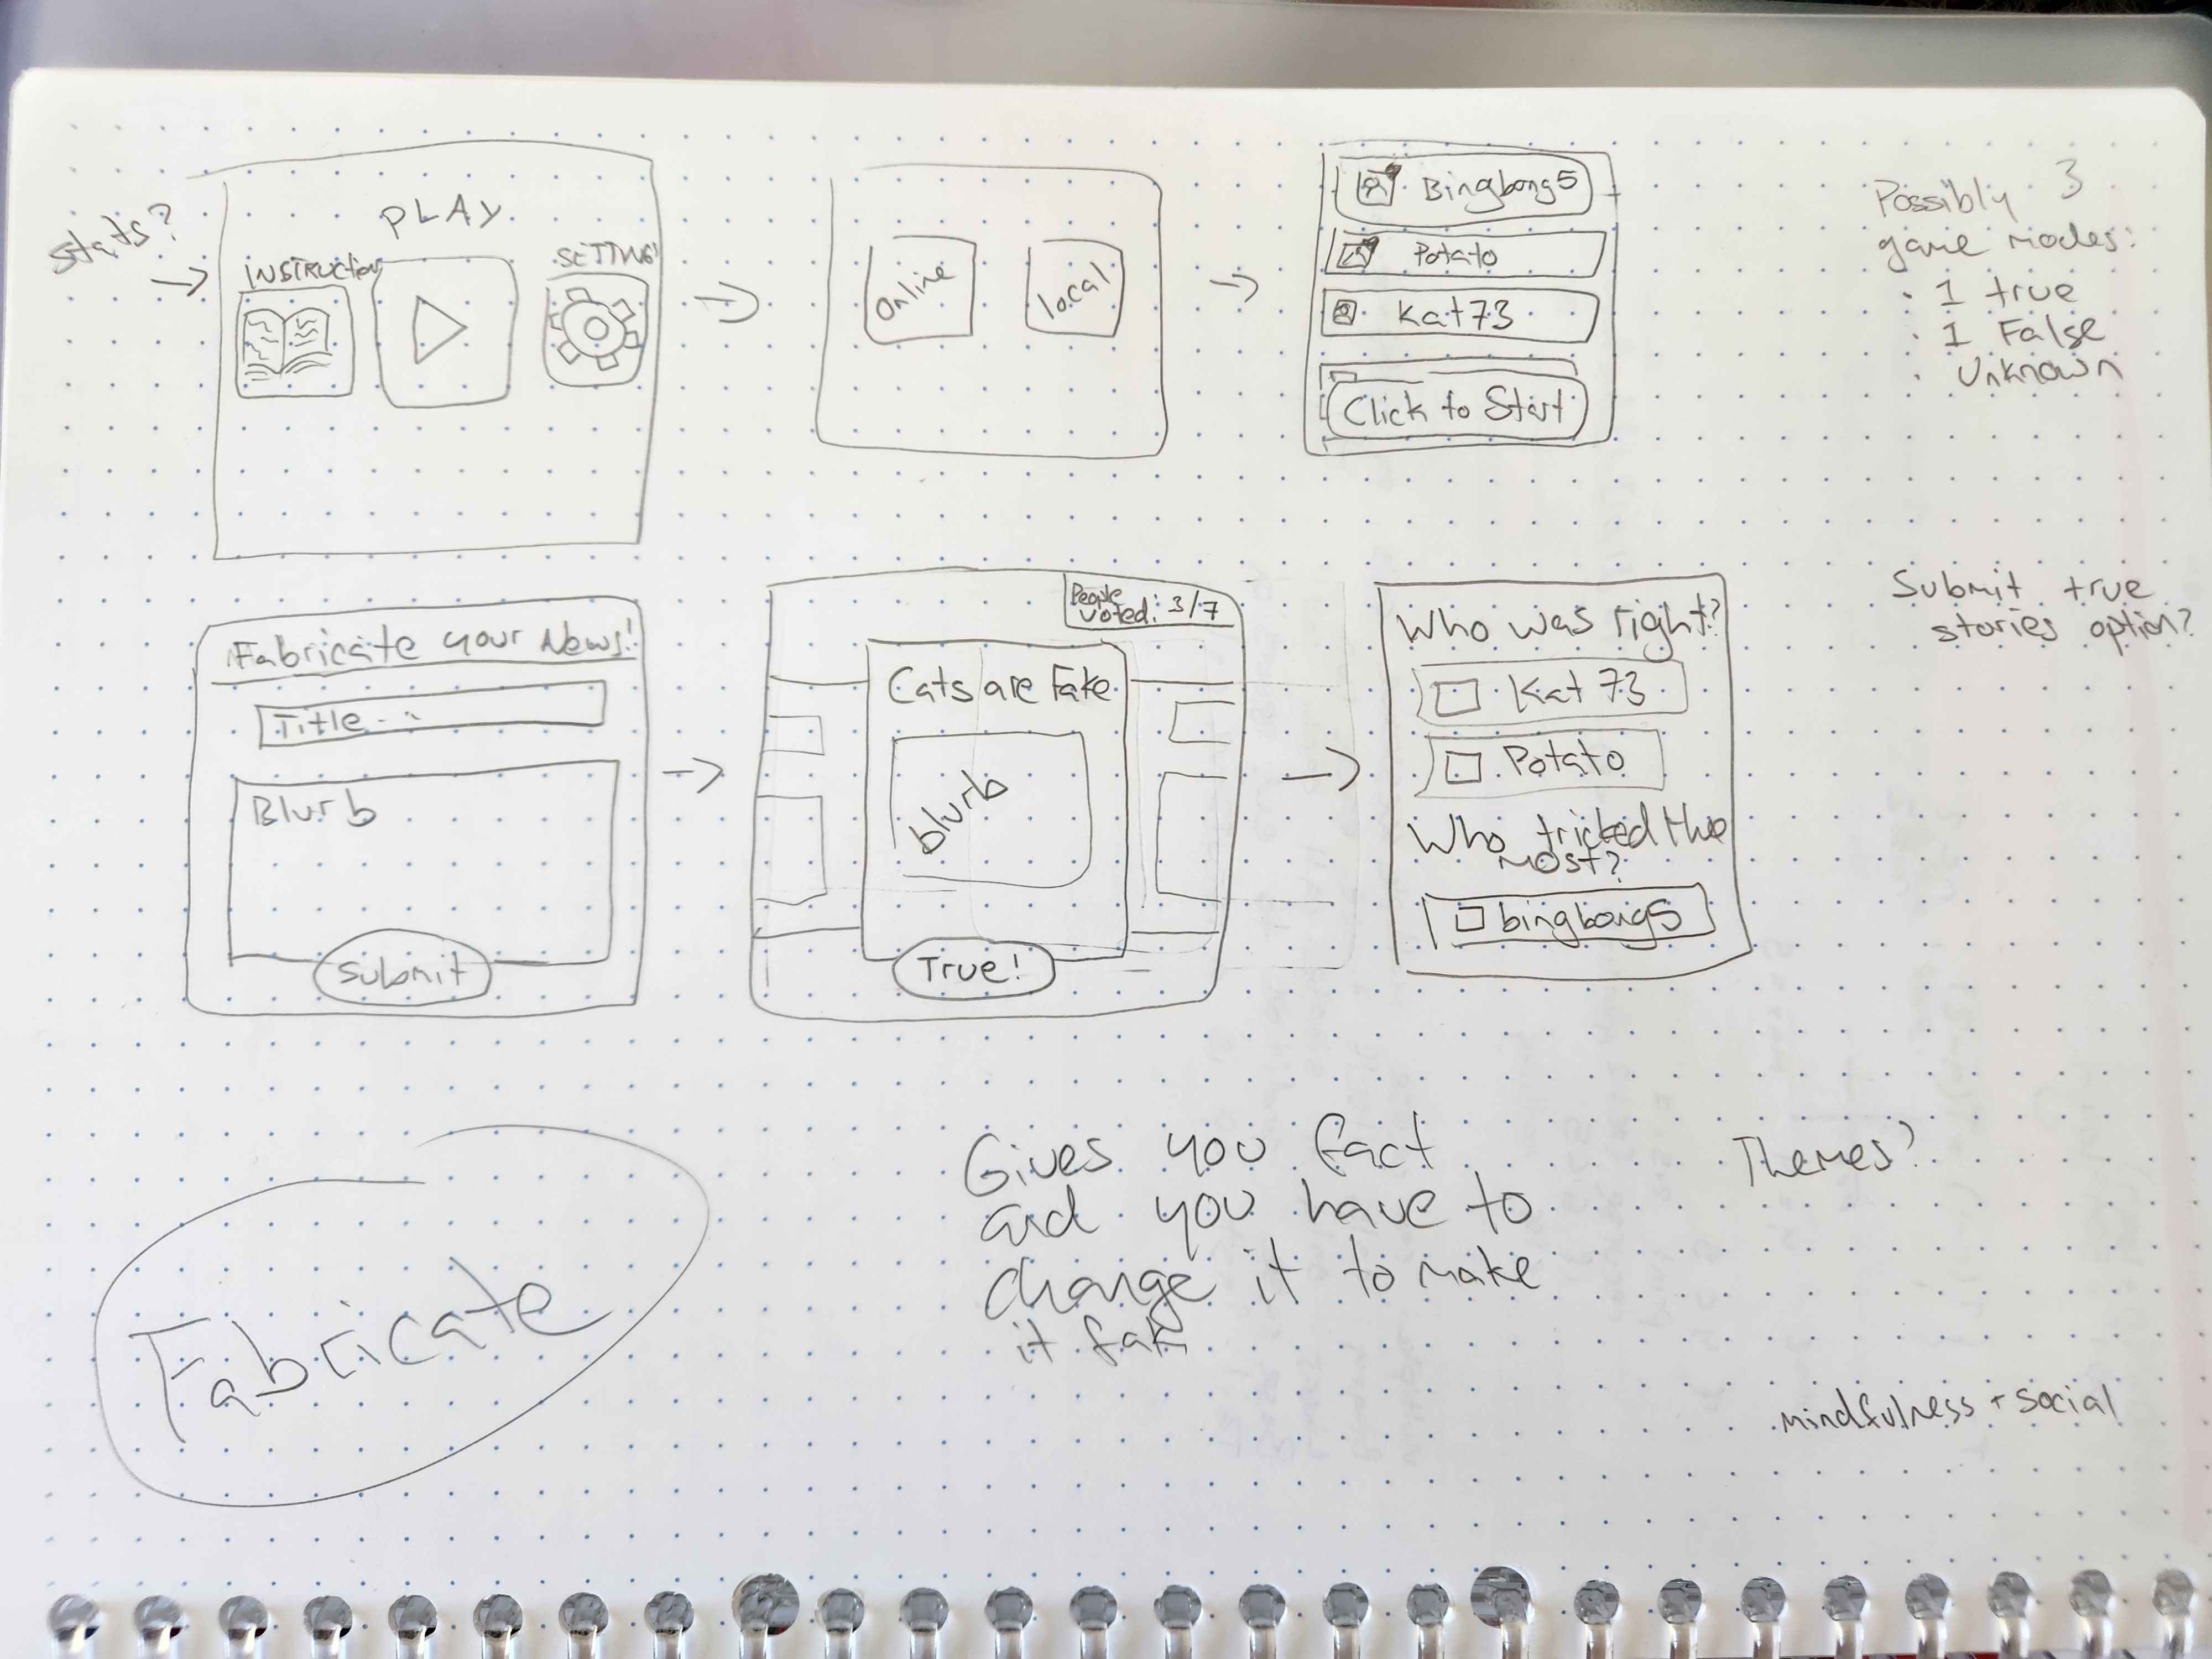 Stats?
PLAY
INSTRUCTION
SETTINGS
Online
local
Bingbong5
Potato
Kat73
Click to Start
Possibly 3
game modes:
· 1 true
· 1 False
· Unknown
Fabricate your News!
Title...
Blurb
Submit
People
voted: 3/7
Cats are Fake
blurb
True!
Who was right?
Kat 73
Potato
Who tricked the
most?
bingbong5
Submit true
stories option?
Fabricate
Gives you fact
and you have to
change it to make
it fake
Themes?
mindfulness + social